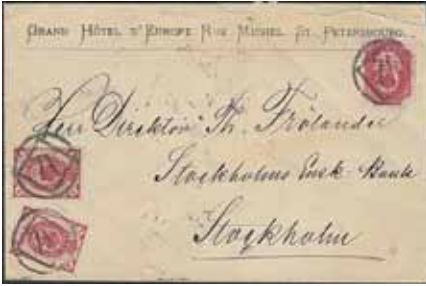 GRAND HÔTEL D'EUROPE RUE MICHEL ST. PETERSBOURG.
Herr Direktör Th. Frölander
Stockholms Ensk. Bank
Stockholm